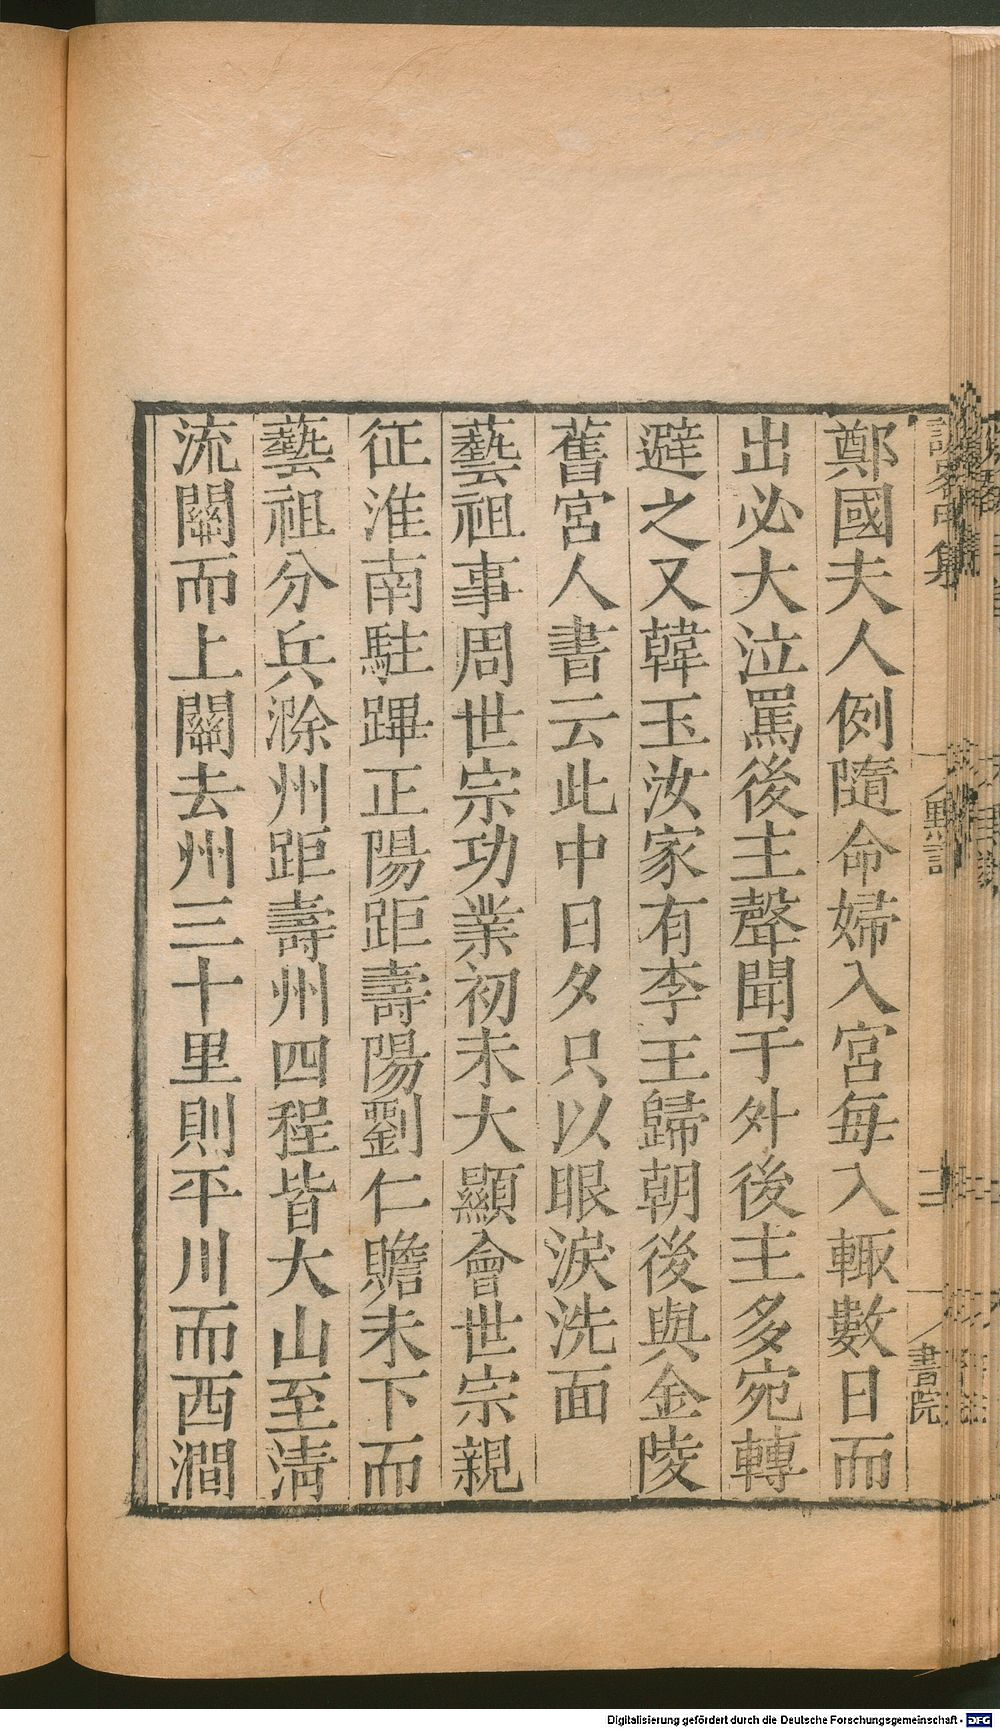 鄭國夫人例隨命婦入宮每入輙數日而
出必大泣罵後主聲聞于外後主多宛轉
避之又韓玉汝家有李王歸朝後與金陵
舊宮人書云此中日夕只以眼淚洗面
藝祖事周世宗功業初未大顯會世宗親
征淮南駐蹕正陽距壽陽劉仁贍未下而
藝祖分兵滁州距壽州四程皆大山至清
流關而上關去州三十里則平川而西澗
書院
Digitalisierung gefördert durch die Deutsche Forschungsgemeinschaft - DFG